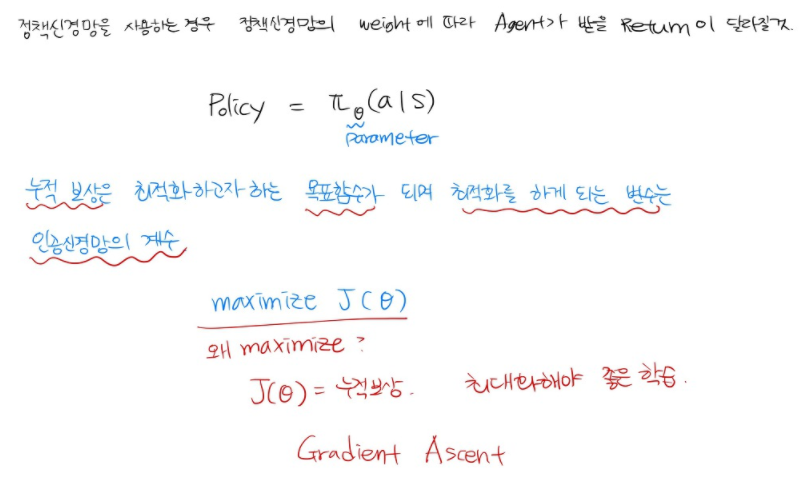 정책신경망을 사용하는 경우 정책신경망의 weight에 따라 Agent가 받을 Return이 달라질것.
Policy = π_θ(a|s)
parameter
누적 보상은 최적화하고자 하는 목표함수가 되며 최적화를 하게 되는 변수는
인공신경망의 계수
maximize J(θ)
왜 maximize?
J(θ) = 누적보상. 최대화해야 좋은 학습.
Gradient Ascent